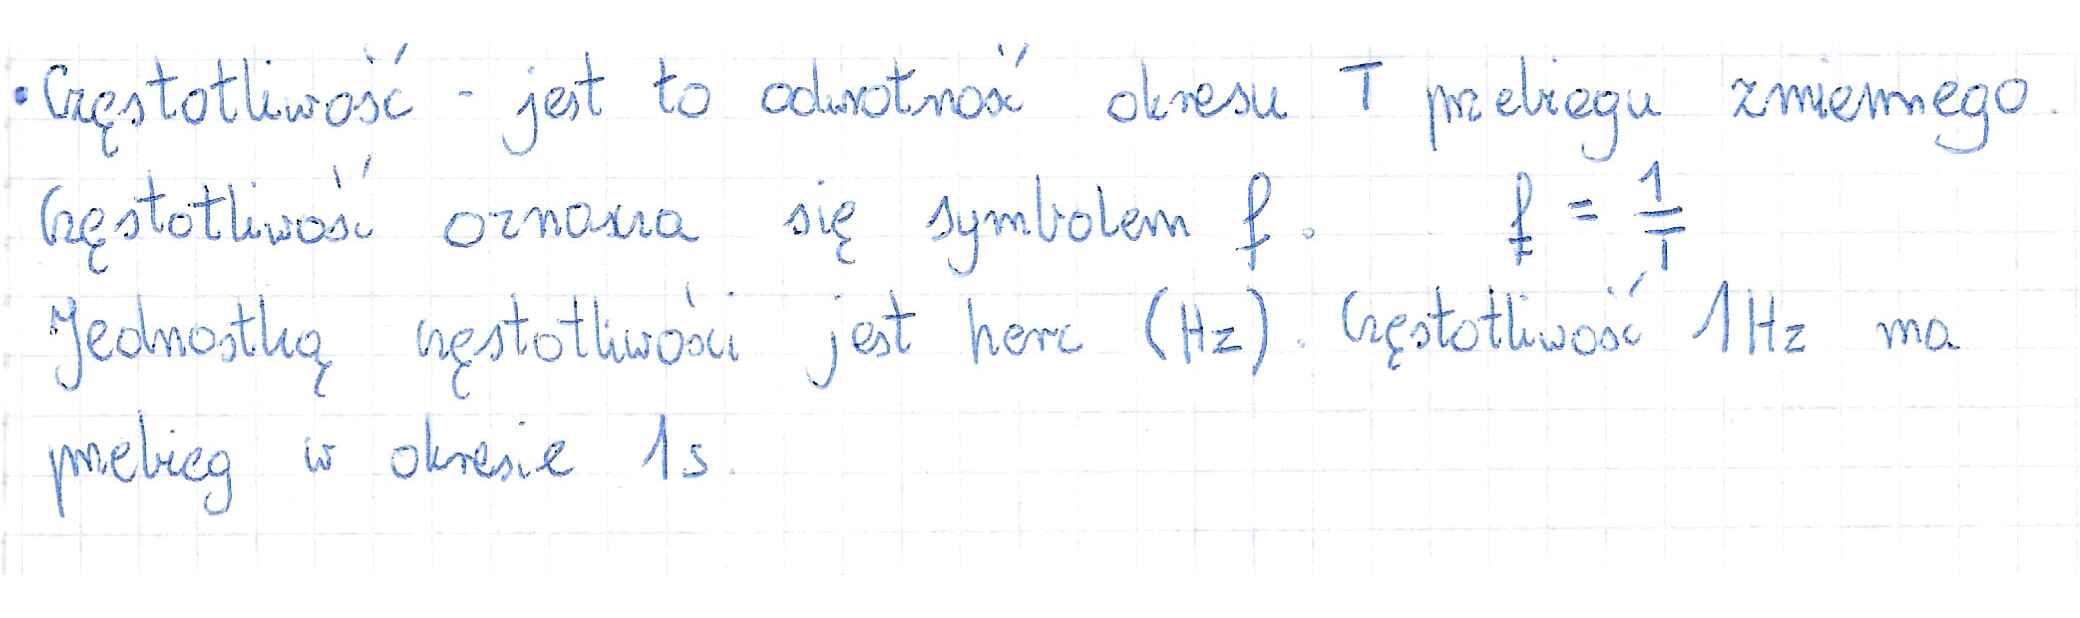 • Częstotliwość - jest to odwrotność okresu T przebiegu zmiennego.
Częstotliwość oznacza się symbolem f. f = 1/T
Jednostką częstotliwości jest herc (Hz). Częstotliwość 1Hz ma
przebieg w okresie 1s.